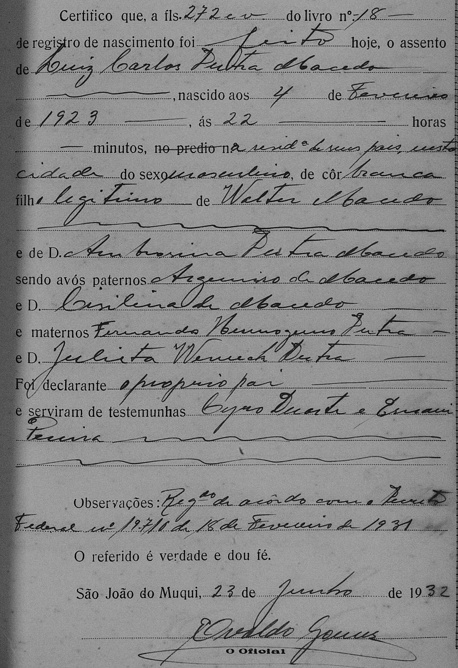 Certifico que, a fls. 272 e v. do livro nº 18 —
de registro de nascimento foi feito hoje, o assento
de Luiz Carlos Dutra Macedo
, nascido aos 4 de Fevereiro
de 1923 —, ás 22 — horas
— minutos, no predio na resid.ª de seus pais, nesta
cidade do sexo masculino, de côr branca
filho legitimo de Walter Macedo
e de D. Ambrosina Dutra Macedo
sendo avós paternos Argemiro de Macedo
e D. de Macedo
e maternos Fernando Dutra —
e D. Julieta Werneck Dutra —
Foi declarante o proprio pai —
e serviram de testemunhas Cyro Duarte e
Pereira
Observações: Reg.do de acôrdo com o Decreto
Federal nº 19710 de 18 de Fevereiro de 1931
O referido é verdade e dou fé.
São João do Muqui, 23 de Junho de 1932
Osvaldo Gomes
O Oficial